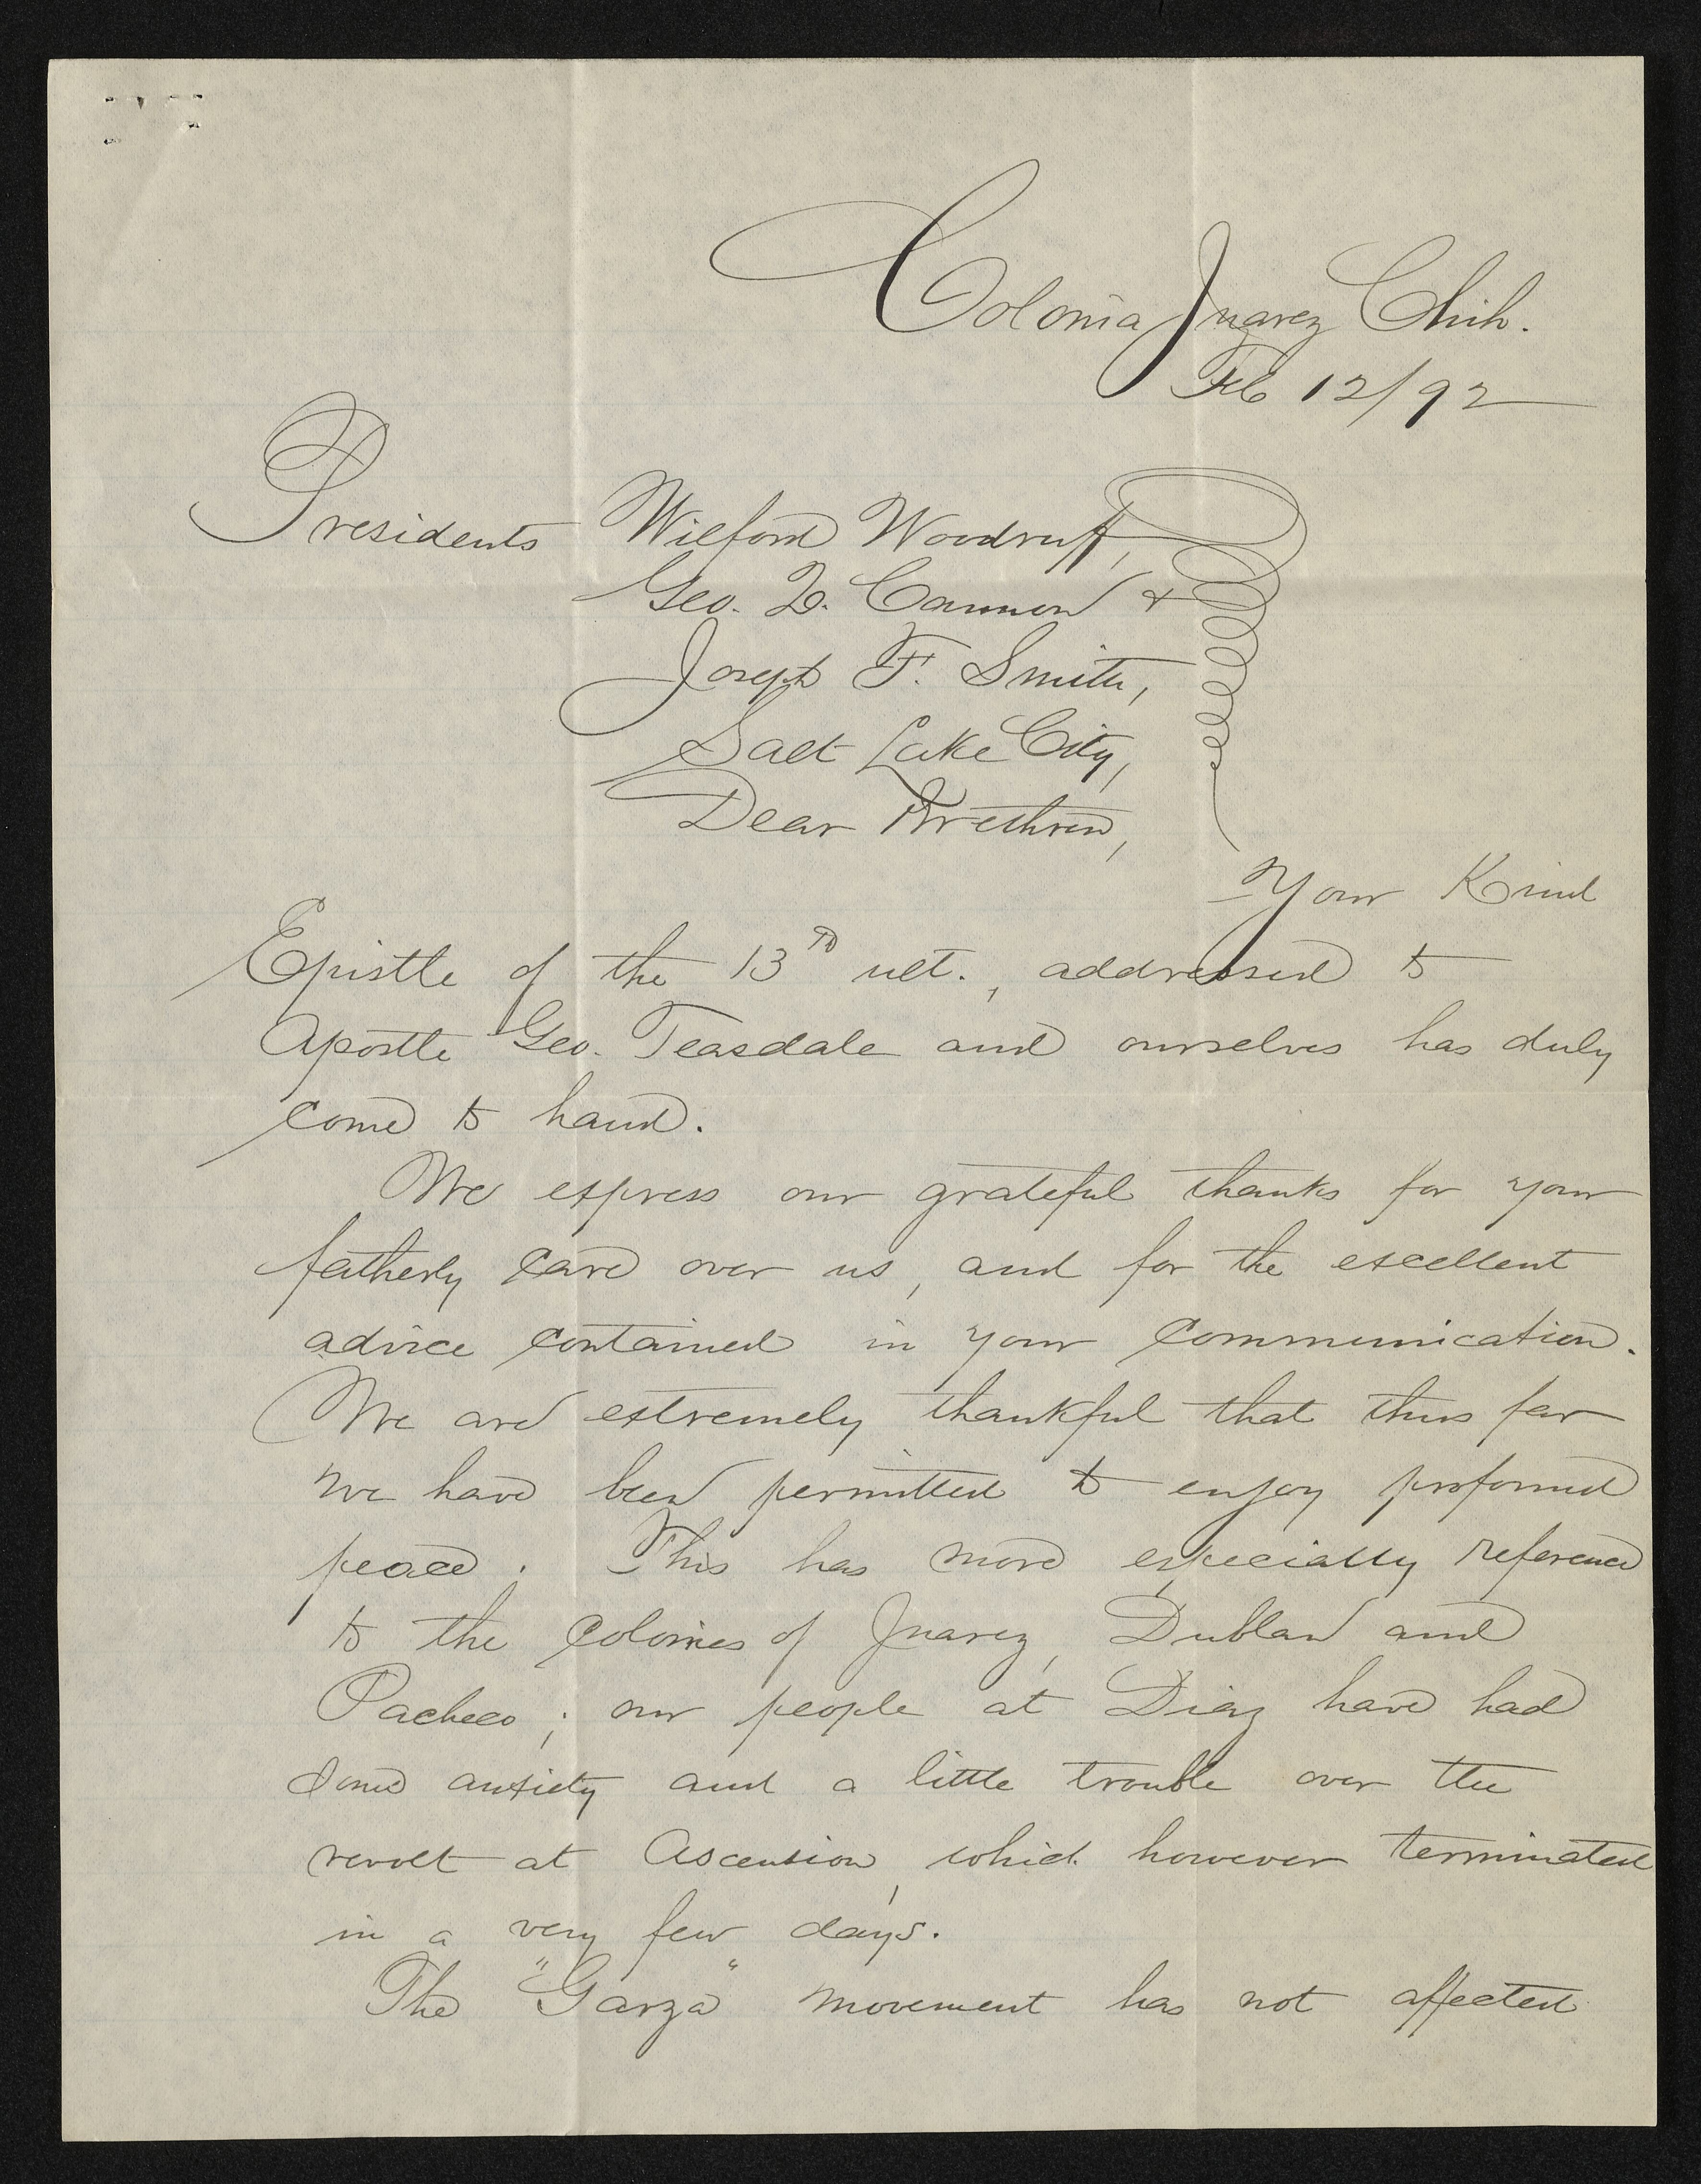 Colonia Juarez Chih.
Feb 12/92
Presidents Wilford Woodruff,
Geo. Q. Cannon &
Joseph F. Smith,
Salt Lake City,
Dear Brethren,
Your Kind
Epistle of the 13th ult., addressed to
Apostle Geo. Teasdale and ourselves has duly
come to hand.
We express our grateful thanks for your
fatherly care over us, and for the excellent
advice contained in your communication.
We are extremely thankful that thus far
we have been permitted to enjoy profound
peace. This has more especially reference
to the colonies of Juarez, Dublan and
Pacheco; our people at Diaz have had
some anxiety and a little trouble over the
revolt at Ascension, which however terminated
in a very few days.
The "Garza" movement has not affected